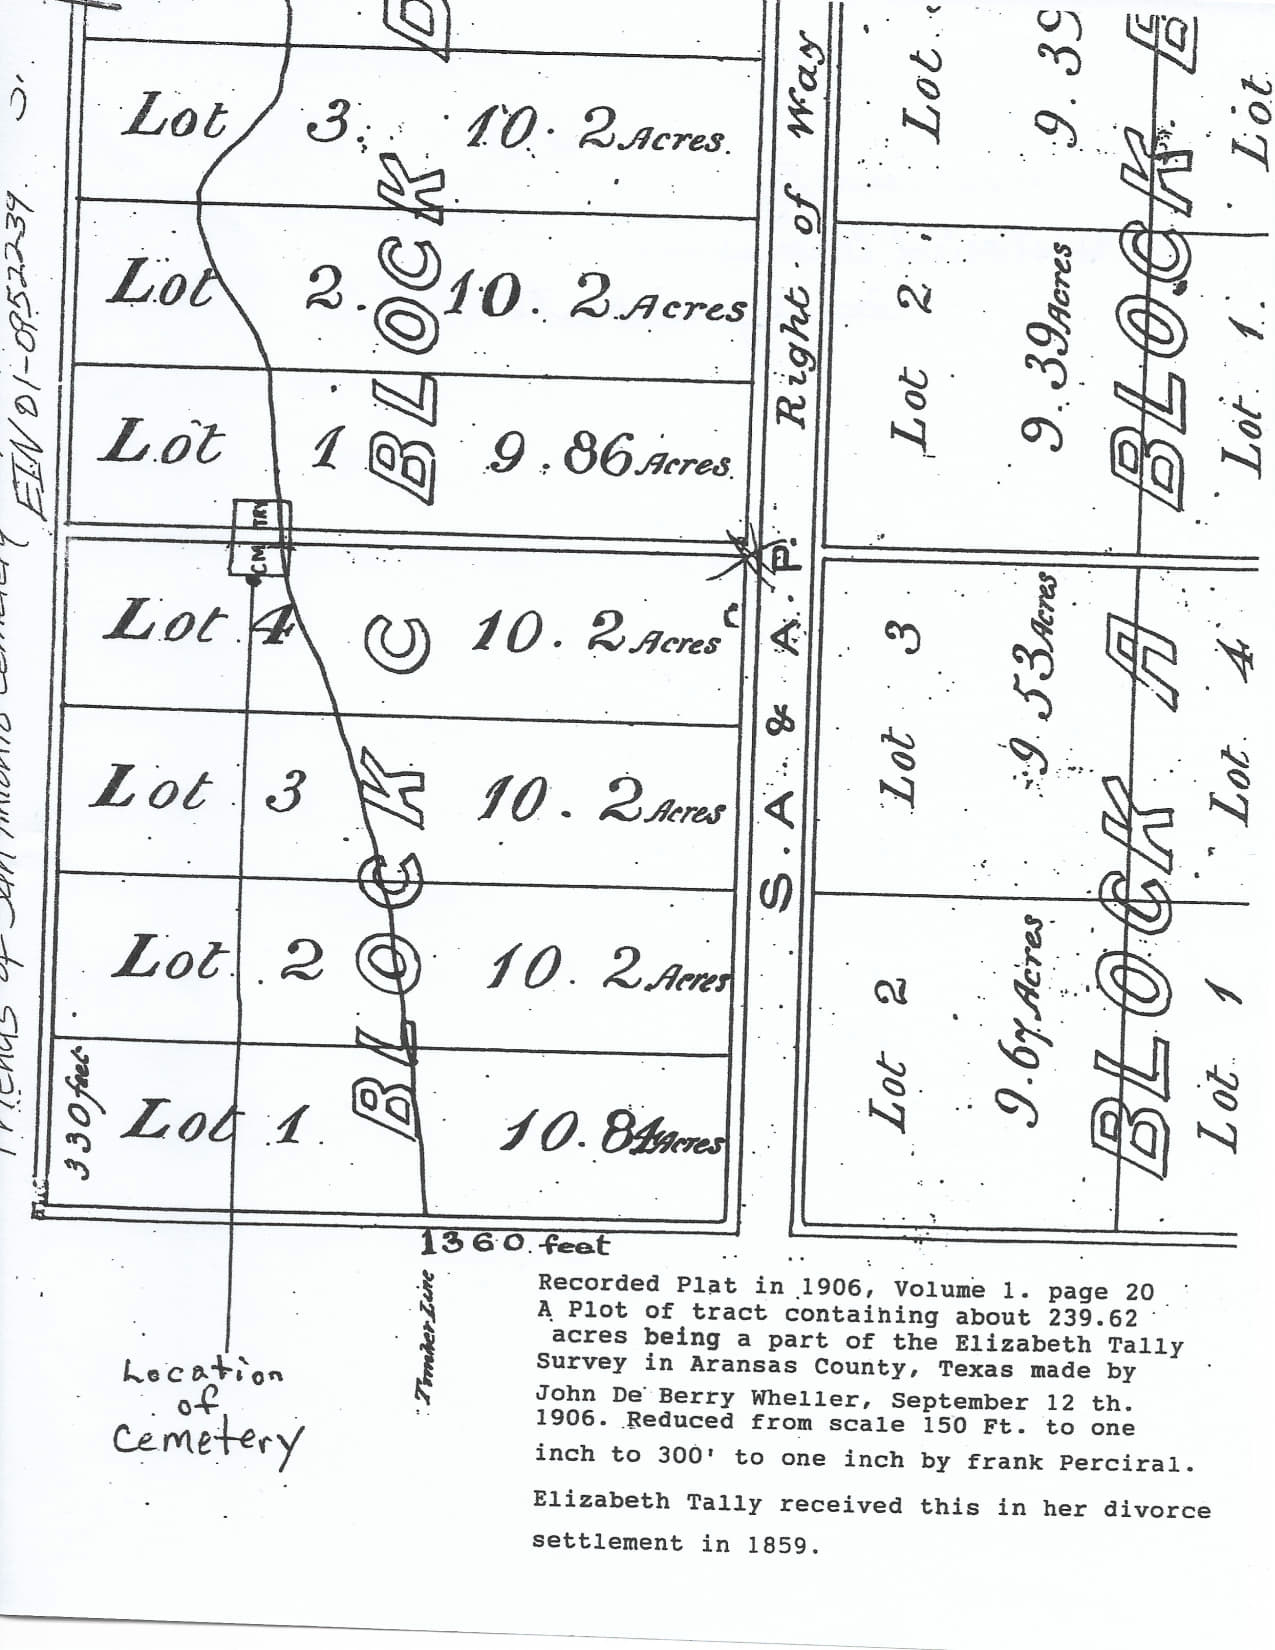 D
Lot 3. 10.2 Acres.
Lot 2. 10.2 Acres
Lot 1 9.86 Acres.
BLOCK
CM TRY
Lot 4 10.2 Acres
Lot 3 10.2 Acres
Lot 2 10.2 Acres
Lot 1. 10.84 Acres
BLOCK C
330 feet
1360 feet
Timber Line
S. A. & A. P. Right of Way
Lot
9.39
Lot 2
9.39 Acres
BLOCK B
Lot
Lot 1.
Lot 3
9.53 Acres
Lot 2
9.67 Acres
BLOCK A
Lot 4
Lot 1
EIN 01-0952239
of San Antonio Cemetery
Location
of
Cemetery
Recorded Plat in 1906, Volume 1. page 20
A Plot of tract containing about 239.62
acres being a part of the Elizabeth Tally
Survey in Aransas County, Texas made by
John De Berry Wheller, September 12 th.
1906. Reduced from scale 150 Ft. to one
inch to 300' to one inch by frank Perciral.
Elizabeth Tally received this in her divorce
settlement in 1859.